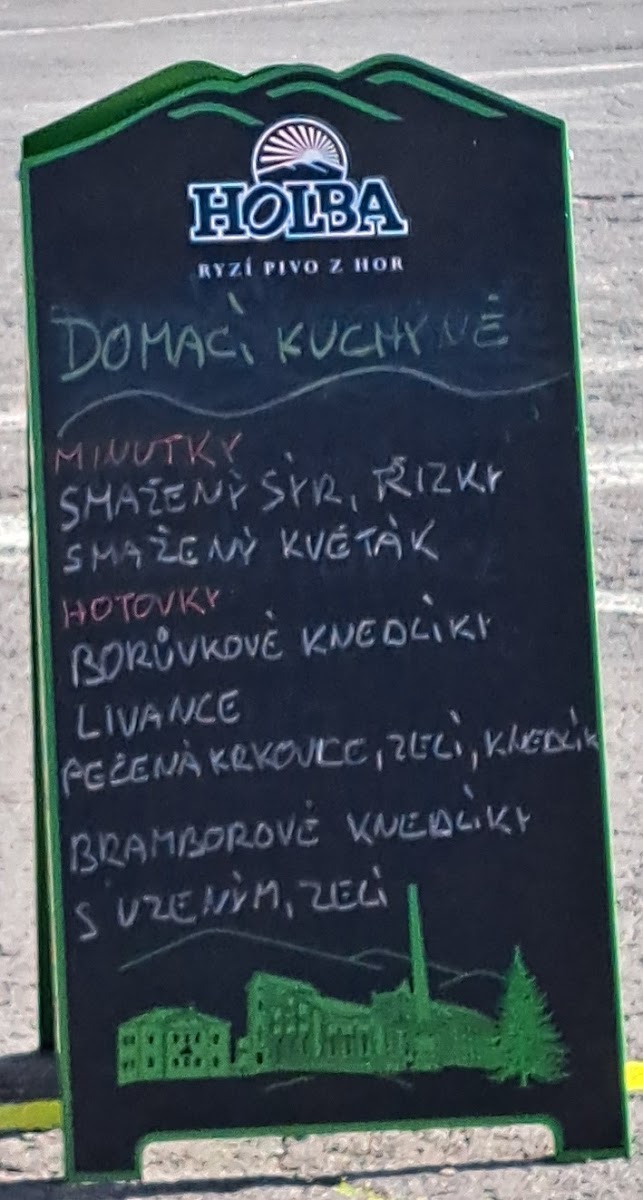 HOLBA
RYZÍ PIVO Z HOR
DOMACÍ KUCHYNĚ
MINUTKY
SMAŽENÝ SÝR, ŘIZKY
SMAŽENÝ KVĚTÁK
HOTOVKY
BORŮVKOVÉ KNEDLÍKY
LIVANCE
PEČENÁ KRKOVICE, ZELÍ, KNEDLÍK
BRAMBOROVÉ KNEDLÍKY
S UZENÝM, ZELÍ